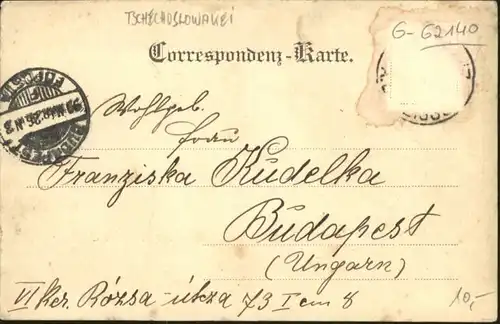 TSCHECHOSLOWAKEI
G-62140
Correspondenz-Karte.
Wohlgeb.
Frau
Franziska Kudelka
Budapest
(Ungarn)
VI Ker. Rózsa-utcza 73 I em 8
10,-
BUDAPEST